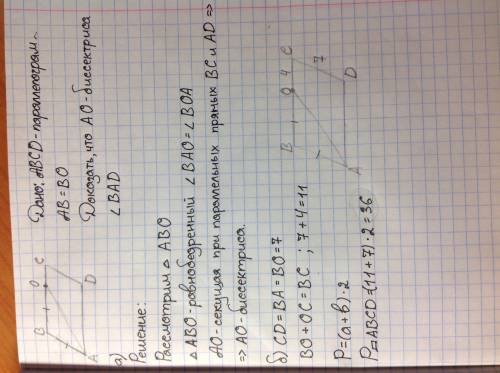 B O C
A D
Дано: ABCD-параллелограм
AB=BO
Доказать, что AO-биссектриса
∠BAD
а)
Решение:
Рассмотрим △ ABO
△ ABO-равнобедренный ∠BAO=∠BOA
AO-секущая при параллельных прямых BC и AD ⇒
⇒ AO-биссектриса.
б) CD=BA=BO=7
BO+OC=BC ; 7+4=11
P=(a+b)·2
P▱ABCD=(11+7)·2=36
B O 4 C
7
A D